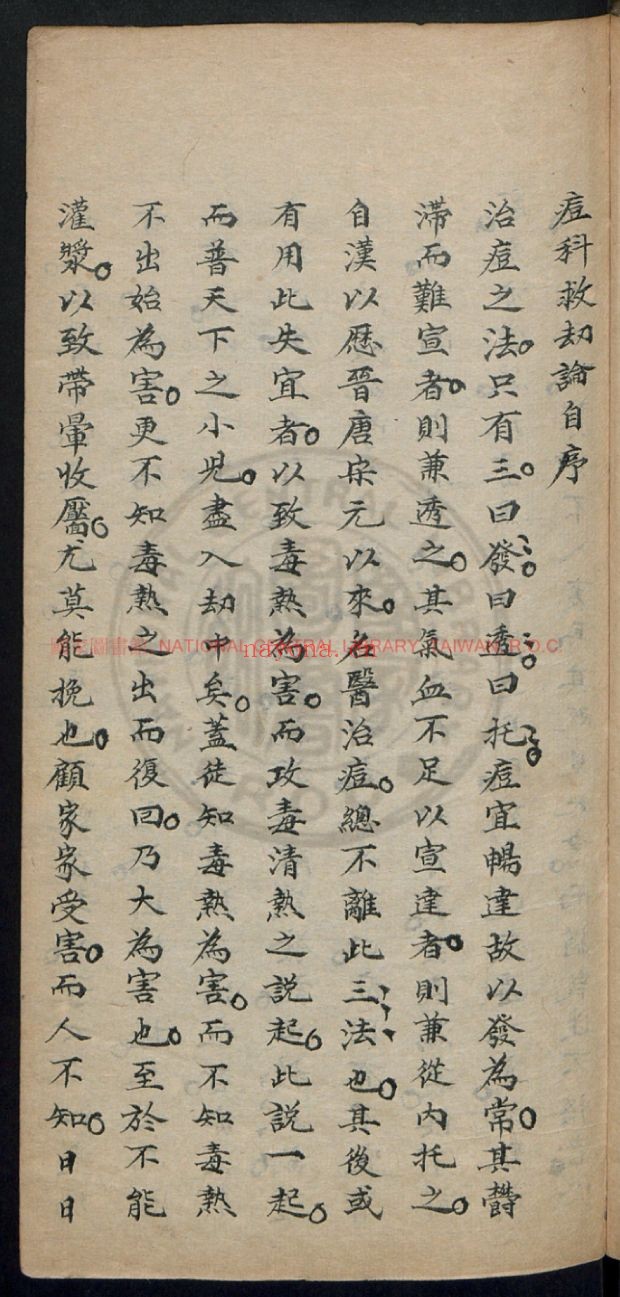 痘科救劫論自序
治痘之法。只有三。曰發。曰透。曰托。痘宜暢達故以發為常。其欝
滯而難宣者。則兼透之。其氣血不足以宣達者。則兼從內托之。
自漢以歷晉唐宋元以來。名醫治痘。總不離此三法也。其後或
有用此失宜者。以致毒熱為害。而攻毒清熱之説起。此説一起。
而普天下之小兒。盡入劫中矣。蓋徒知毒熱為害。而不知毒熱
不出始為害。更不知毒熱之出而復回。乃大為害也。至於不能
灌漿。以致帶暈收靨。尤莫能挽也。顧家家受害。而人不知。日日
NATIONAL CENTRAL LIBRARY, TAIWAN R.O.C.